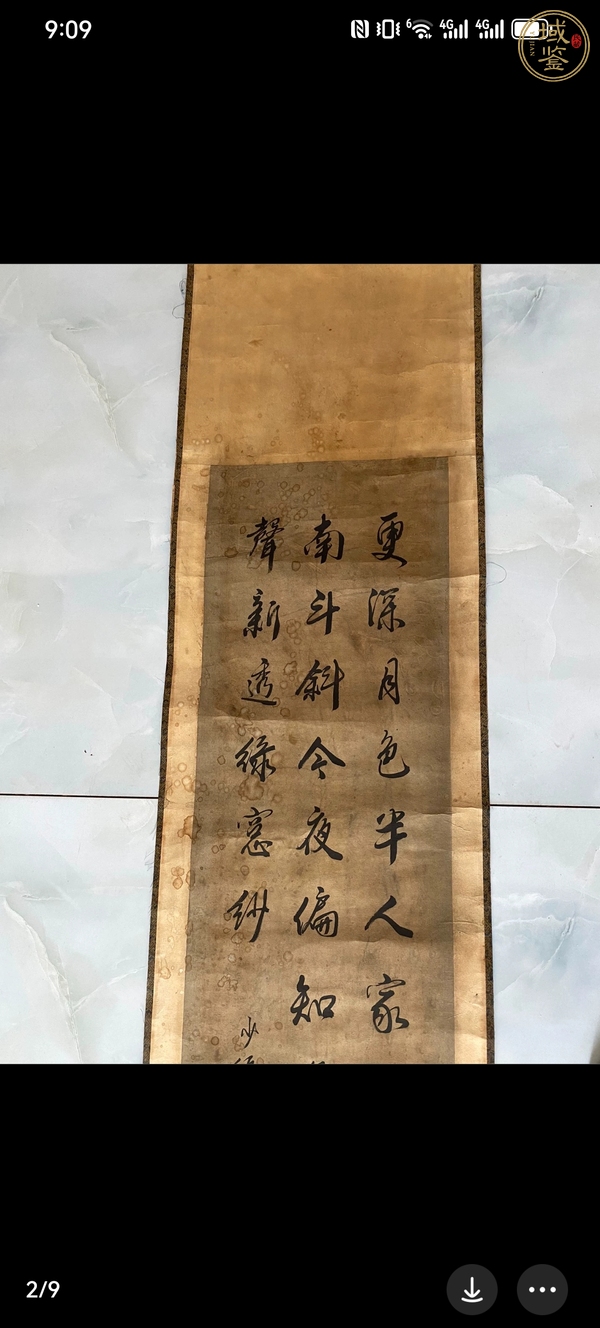 9:09
6 4G 4G
域鉴
JIAN
更深月色半人家
南斗斜今夜偏知
聲新透綠窓紗
少
2/9